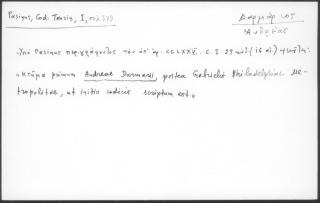 Pasinus, Cod. Taurin, I, 383
Δαρμάριος
Ἀνδρέας
Ὑπὸ Pasinus περιγράφοντος τὸν ὑπ' ἀρ. CCLXXV. C. I. 29 χαρτ. (16 αἰ.)
«κτῆμα primum Andreae Darmarii, postea Gabrielis Philadelphiae Me-
tropolitae, ut initio codicis scriptum est.»